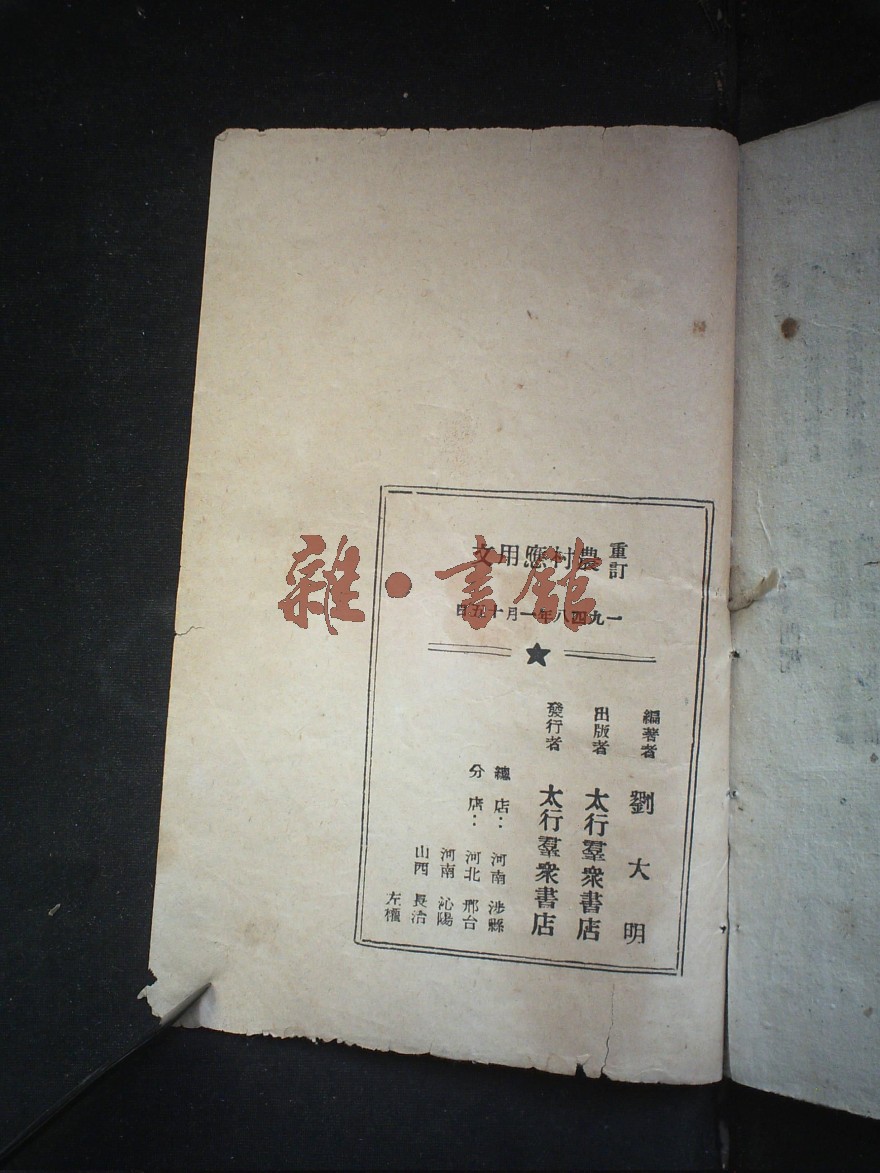 重訂
農村應用文
一九四八年一月十五日
編著者 劉大明
出版者 太行羣衆書店
發行者 太行羣衆書店
總店： 河南 涉縣
分店： 河北 邢台
河南 沁陽
山西 長治
左權
雜·書館